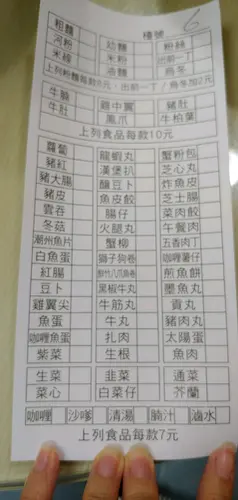 檯號 6
粗麵 幼麵 粉絲
河粉 米粉 出前一丁
米線 油麵 烏冬
上列粉麵每款8元,出前一丁/烏冬加2元
牛腩 雞中翼 豬肚
牛肚 鳳爪 牛柏葉
上列食品每款10元
蘿蔔 龍蝦丸 蟹粉包
豬紅 漢堡扒 芝心丸
豬大腸 釀豆卜 炸魚皮
豬皮 魚皮餃 芝士腸
雲吞 腸仔 菜肉餃
冬菇 火腿丸 午餐肉
潮州魚片 蟹柳 五香肉丁
白魚蛋 獅子狗卷 咖喱薯仔
紅腸 鮮竹八爪魚卷 煎魚餅
豆卜 黑椒牛丸 墨魚丸
雞翼尖 牛筋丸 貢丸
魚蛋 牛丸 豬肉丸
咖喱魚蛋 扎肉 太陽蛋
紫菜 生根 魚肉
生菜 韭菜 通菜
菜心 白菜仔 芥蘭
咖喱 沙嗲 清湯 腩汁 滷水
上列食品每款7元